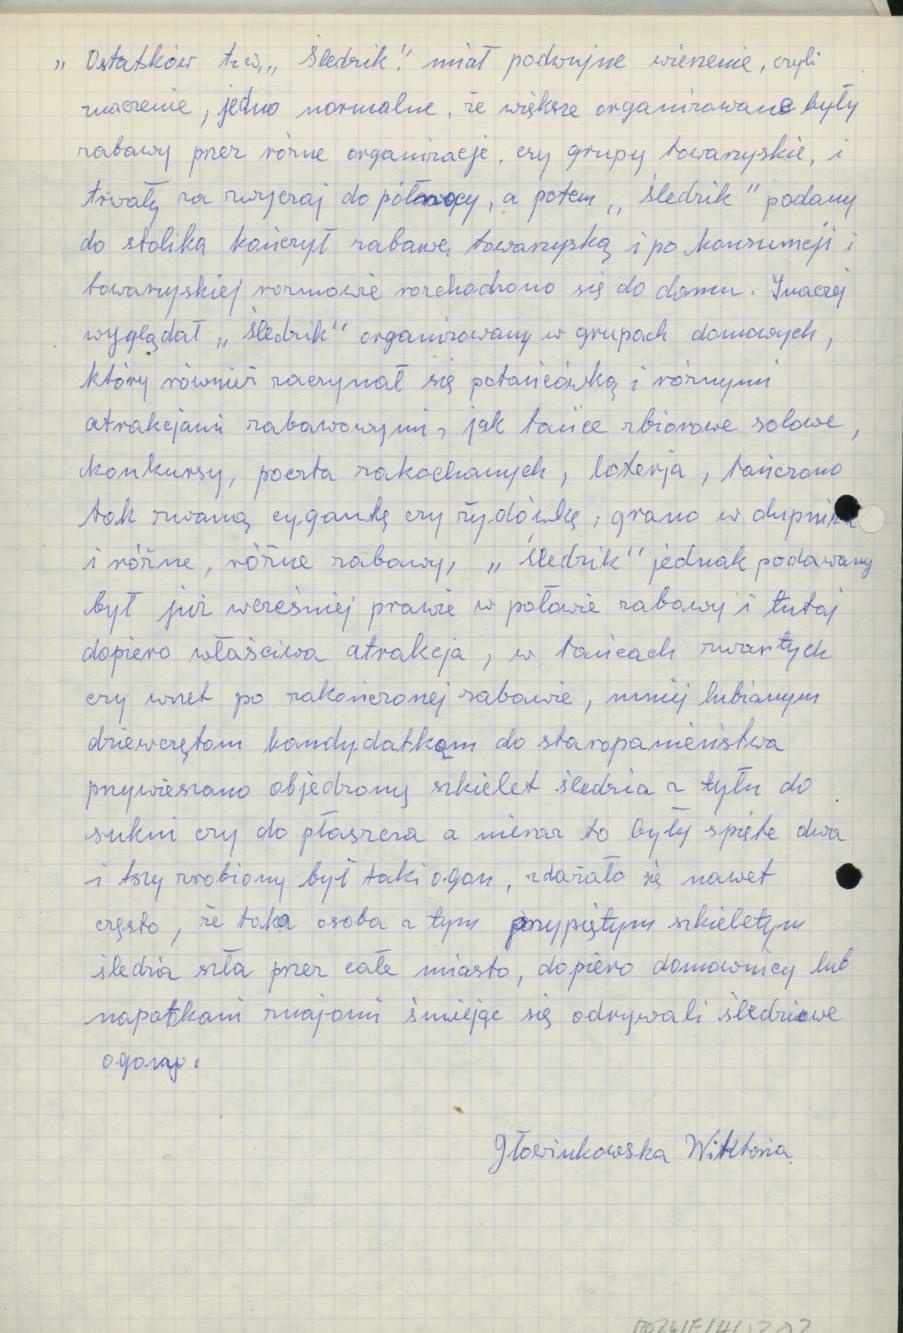 „ Ostatków tzw. „ Śledzik". miał podwójne wierzenie, czyli
znaczenie, jedno normalne, że większe organizowane były
zabawy przez różne organizacje, czy grupy towarzyskie, i
trwały za zwyczaj do północy, a potem „ śledzik" podany
do stolika kończył zabawę towarzyską i po konsumcji i
towarzyskiej rozmowie rozchodzono się do domu. Inaczej
wyglądał „ śledzik" organizowany w grupach domowych,
który również zaczynał się potańcówką i róznymi
atrakcjami zabawowymi, jak tańce zbiorowe solowe,
konkursy, poczta zakochanych, loterja, tańczono
tak zwaną cygankę czy żydówkę, grano w dupnika
i różne, różne zabawy, „ śledzik" jednak podawany
był już wcześniej prawie w połowie zabawy i tutaj
dopiero właściwa atrakcja, w tańcach zwartych
czy wnet po zakończonej zabawie, mniej lubianym
dziewczętom kandydatkom do staropanieństwa
przywieszano objedzony szkielet śledzia z tyłu do
sukni czy do płaszcza a nieraz to były spięte dwa
i trzy zrobiony był taki ogon, zdażało się nawet
często, że taka osoba z tym przypiętym szkieletym
śledzia szła przez całe miasto, dopiero domownicy lub
napotkani znajomi śmiejąc się odrywali śledziowe
ogony.
Głowinkowska Wiktoria